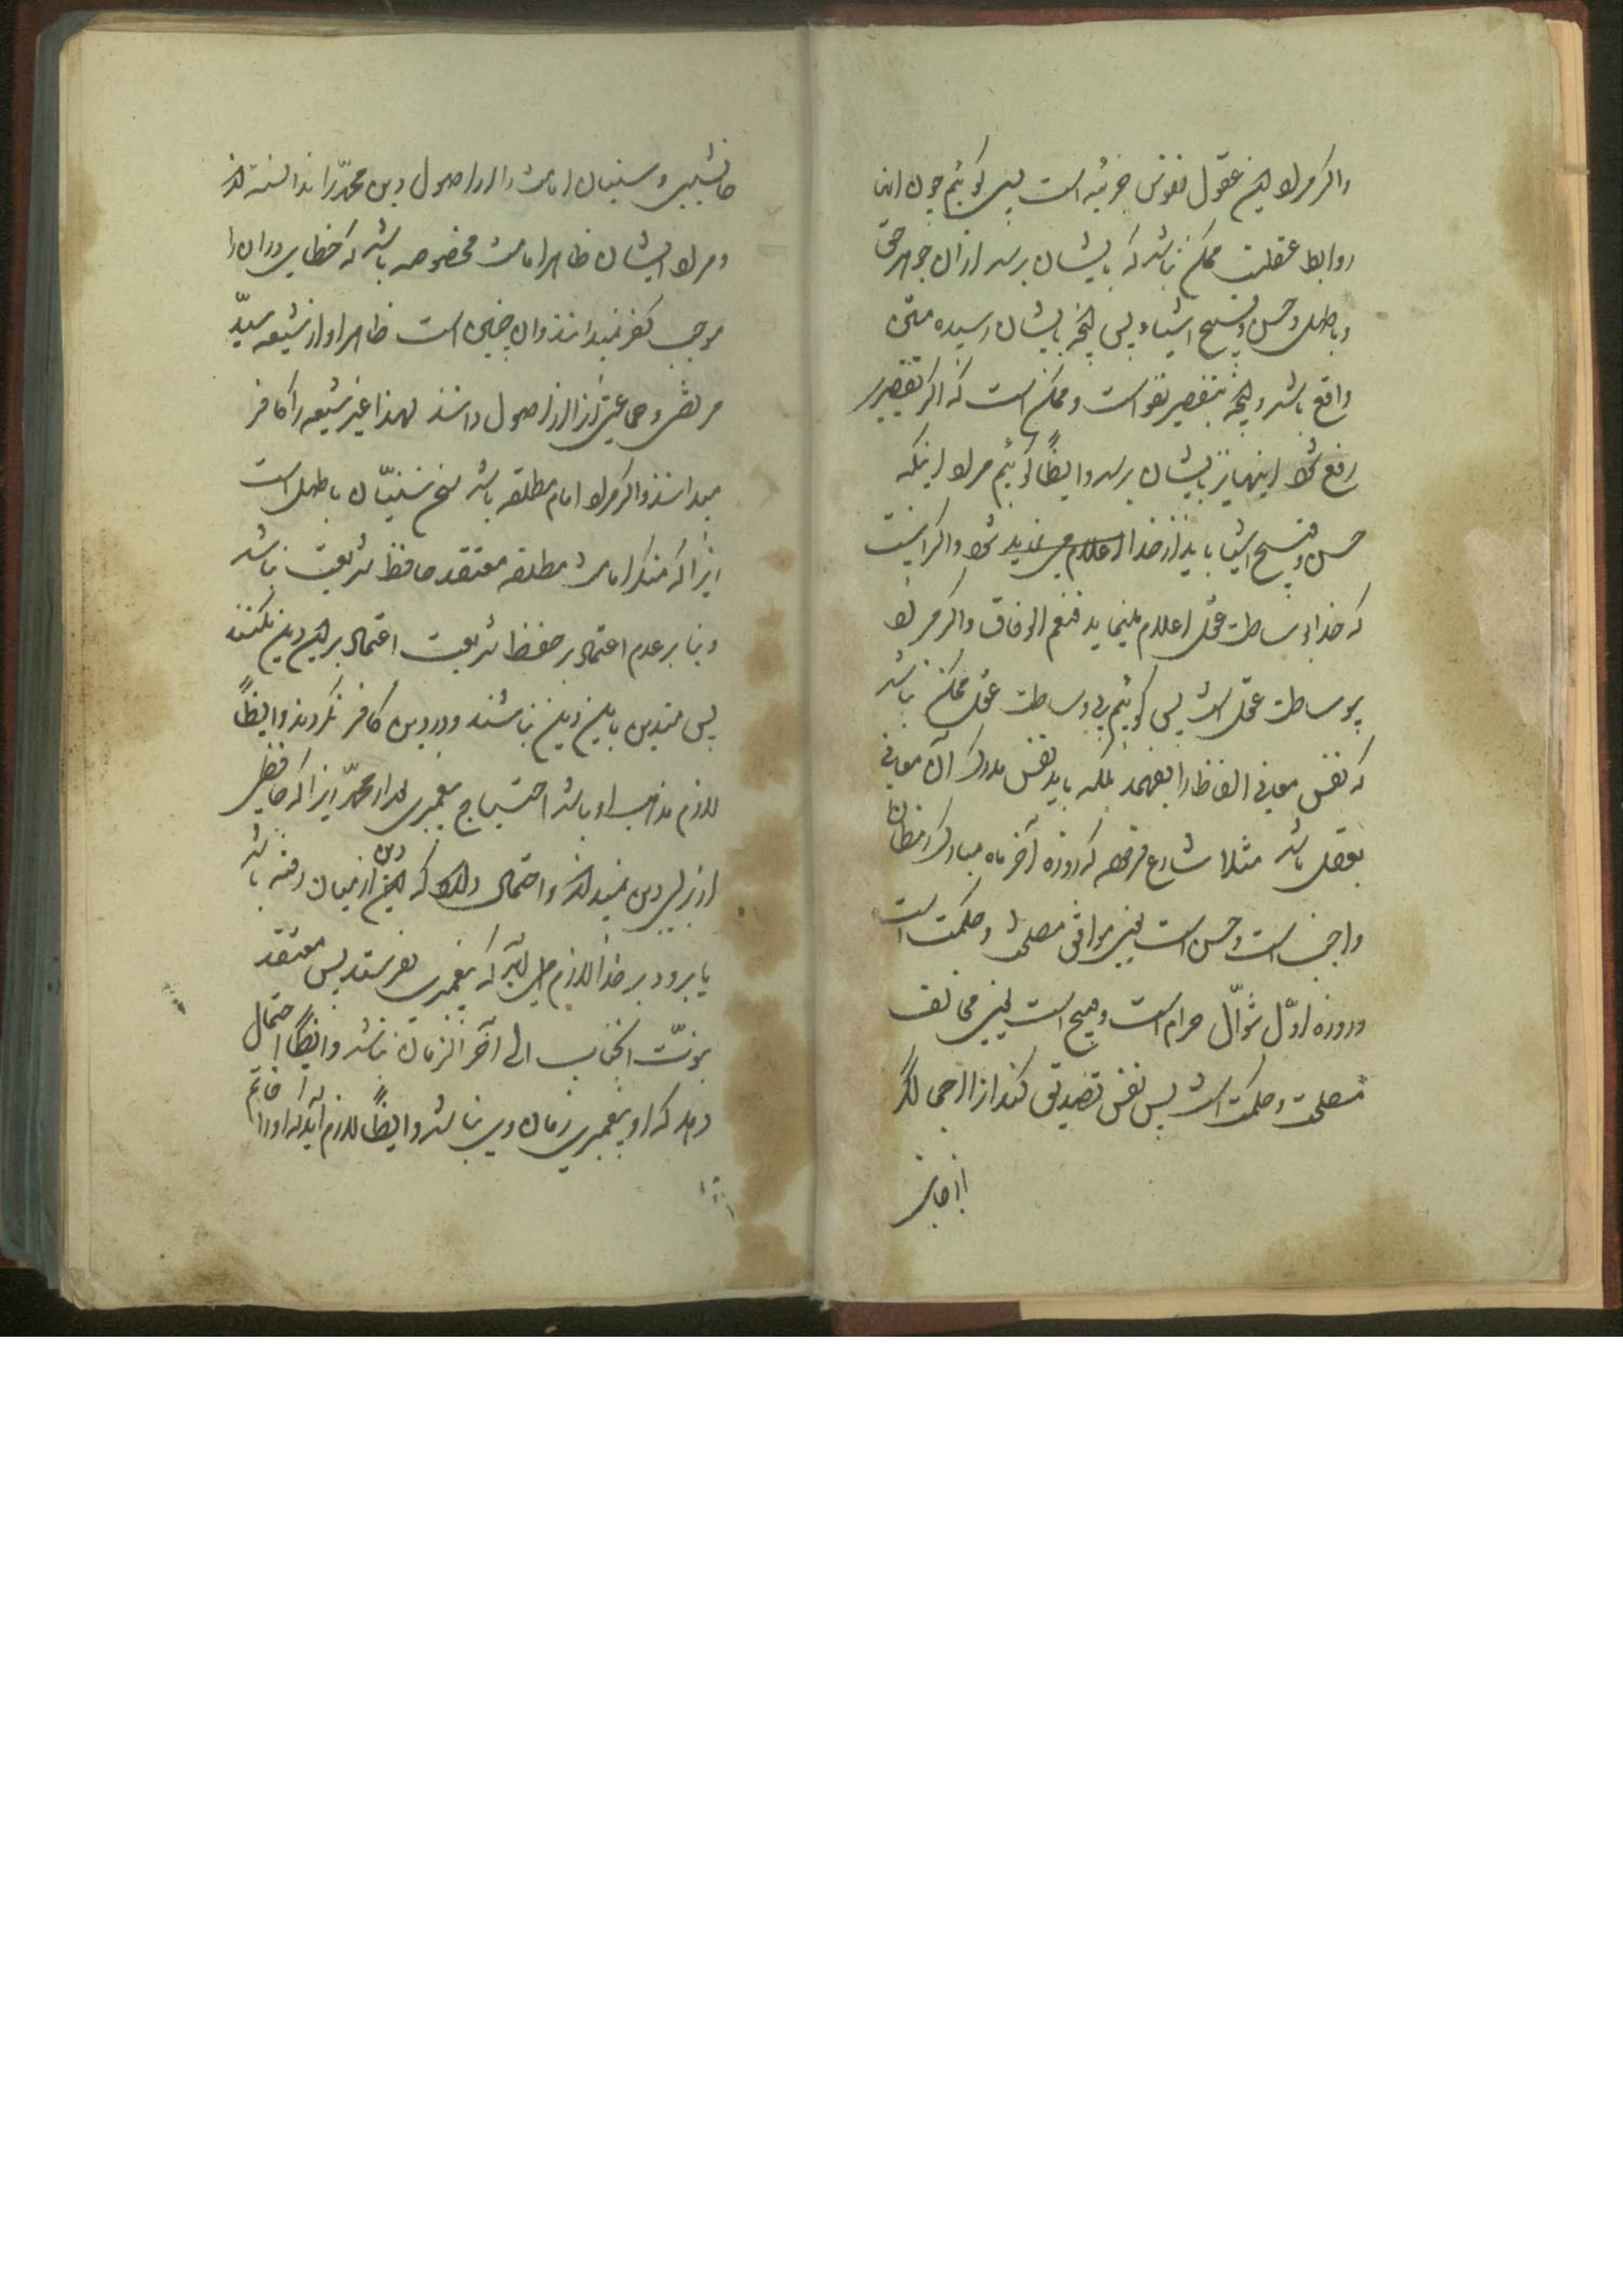 واکر مراد این عقول نفوس جزئیه است پس کوئیم چون این
روابط عقلیت ممکن باشد که بایشان برسد از آن جوهر حق
و باطل و حسن و قبیح اشیا و پس آنچه بایشان رسیده متیقن
واقع باشد و آنچه بتقصیر نفوس است و ممکن است که اکر تقصیر
رفع شود اینها نیز بایشان برسد وایضاً کوئیم مراد اینکه
حسن و قبیح اشیا باید از خدا اعلام می نماید شود و اکر اینست
که خدا بوساطت عقل اعلام مینماید فنعم الوفاق واکر مراد
بوساطت عقل است پس کوئیم بی وساطت عقل ممکن نباشد
که نفس معانی الفاظ را بفهمد بلکه باید نفس مدرک آن معانی
بعقل باشد مثلا شارع فرموده که روزه آخر ماه مبارک رمضان
واجب است و حسن است یعنی موافق مصلحت و حکمت است
و روزه اوّل شوّال حرام است و قبیح است یعنی مخالف
مصلحت و حکمت است پس نفس تصدیق کند از الرحمن اکر
از جانب
جانشینی و سنیان امامت را از اصول دین محمّد را ندانسته اند
و مراد ایشان ظاهرا امامت مخصوصه باشد که خطای در آن را
موجب کفر نمیدانند و آن چنین است ظاهرا و از شیعه سیّد
مرتضی و جماعتی آنرا از اصول دانند لهذا غیر شیعه را کافر
میدانند واکر مراد امام مطلقه باشد سخن سنیّان باطل است
زیرا که منکر امامت مطلقه معتقد حافظ شریعت نباشد
و بنا بر عدم اعتماد بر حفظ شریعت اعتماد بر این دین نکنند
پس متدین باین دین نباشند و در دین کافر نکردند وایضاً
لازم مذهب او باشد احتیاج پیغمبری بعد از محمّد زیرا که حافظی
از برای دین نمیداند و احتمال دارد که این دین از میان رفته باشد
یا برود بر خدا لازم می آید که پیغمبری بفرستد پس معتقد
نبوّت آنجناب الی آخر الزمان نباشد وایضاً احتمال
دهد که او پیغمبری زمان وی نباشد وایضاً لازم آید که او را خاتم